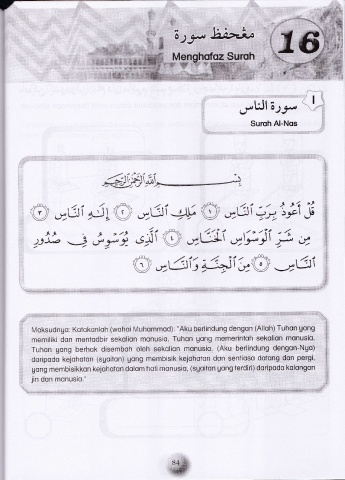 مڠحفظ سورة
Menghafaz Surah
16
ا
سورة الناس
Surah Al-Nas
بِسْمِ اللَّهِ الرَّحْمَٰنِ الرَّحِيمِ
قُلْ أَعُوذُ بِرَبِّ النَّاسِ ١ مَلِكِ النَّاسِ ٢ إِلَٰهِ النَّاسِ ٣
مِن شَرِّ الْوَسْوَاسِ الْخَنَّاسِ ٤ الَّذِي يُوَسْوِسُ فِي صُدُورِ
النَّاسِ ٥ مِنَ الْجِنَّةِ وَالنَّاسِ ٦
Maksudnya: Katakanlah (wahai Muhammad): "Aku berlindung dengan (Allah) Tuhan yang
memiliki dan mentadbir sekalian manusia, Tuhan yang memerintah sekalian manusia,
Tuhan yang berhak disembah oleh sekalian manusia. (Aku berlindung dengan-Nya)
daripada kejahatan (syaitan) yang membisik kejahatan dan sentiasa datang dan pergi,
yang membisikkan kejahatan dalam hati manusia, (syaitan yang terdiri) daripada kalangan
jin dan manusia."
84